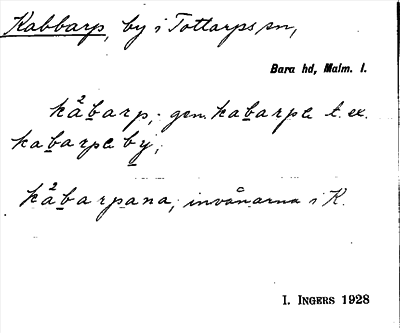 Kabbarp, by i Tottarps sn,
Bara hd, Malm. l.
kå²barp; gen. kabarps t. ex.
kabarps by;
kå²barpana, invånarna i K.
I. INGERS 1928